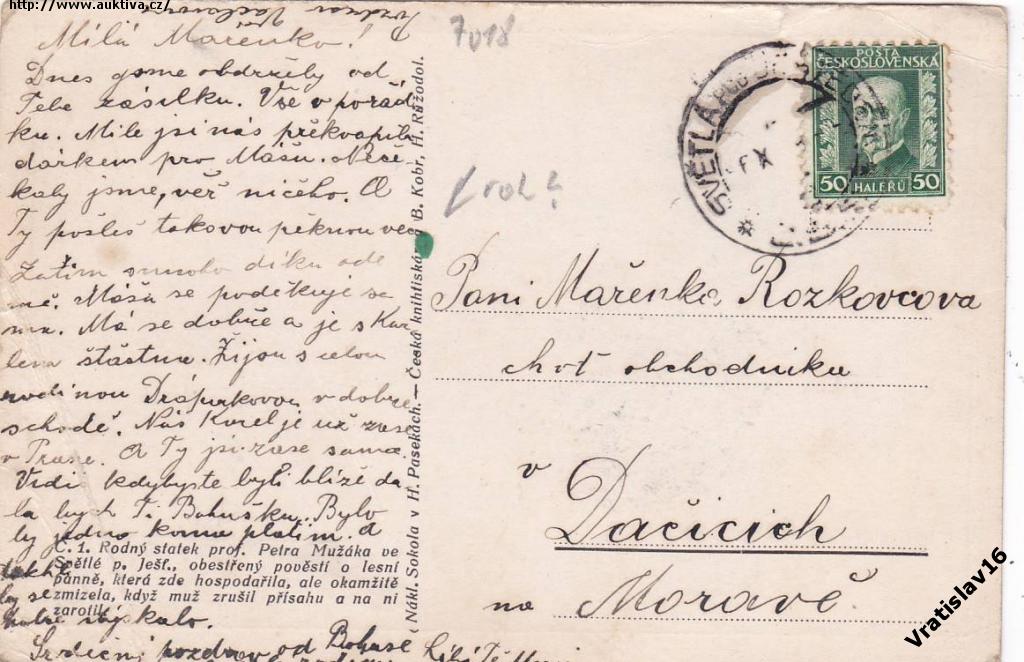 http://www.auktiva.cz/
Pozdrav
7018
Milá Mařenko!
Dnes jsme obdržely od
Tebe zásilku. Vše v pořád
ku. Mile jsi nás překvapila
dárkem pro Mášu. Neče
kaly jsme, věř ničeho. A
Ty pošleš takovou pěknou věc
Zatím mnoho díků ode
mě. Máša se poděkuje sa
ma. Má se dobře a je s Kar
lem šťastna. Žijou s celou
rodinou v dobré
schodě. Náš Karel je už zase
v Praze. A Ty jsi zase sama.
Vidíš kdybyste byli blíže da
la bych Ti Bohušku. Bylo
by jedno komu platím. A
také
by se
dobře
Srdečný pozdrav od Bohuše
Č. 1. Rodný statek prof. Petra Mužáka ve
Světlé p. Ješť., obestřený pověstí o lesní
panně, která zde hospodařila, ale okamžitě
zmizela, když muž zrušil přísahu a na ni
zarotil.
(Nákl. Sokola v H. Pasekách. — Česká knihtiskárna B. Kobr, H. Růžodol.
POŠTA
ČESKOSLOVENSKÁ
50 HALÉŘŮ 50
SVĚTLÁ POD JEŠTĚDEM
Paní Mařenka Rozkovcova
chvt obchodníka
v
Dačicích
na Moravě.
Vratislav16